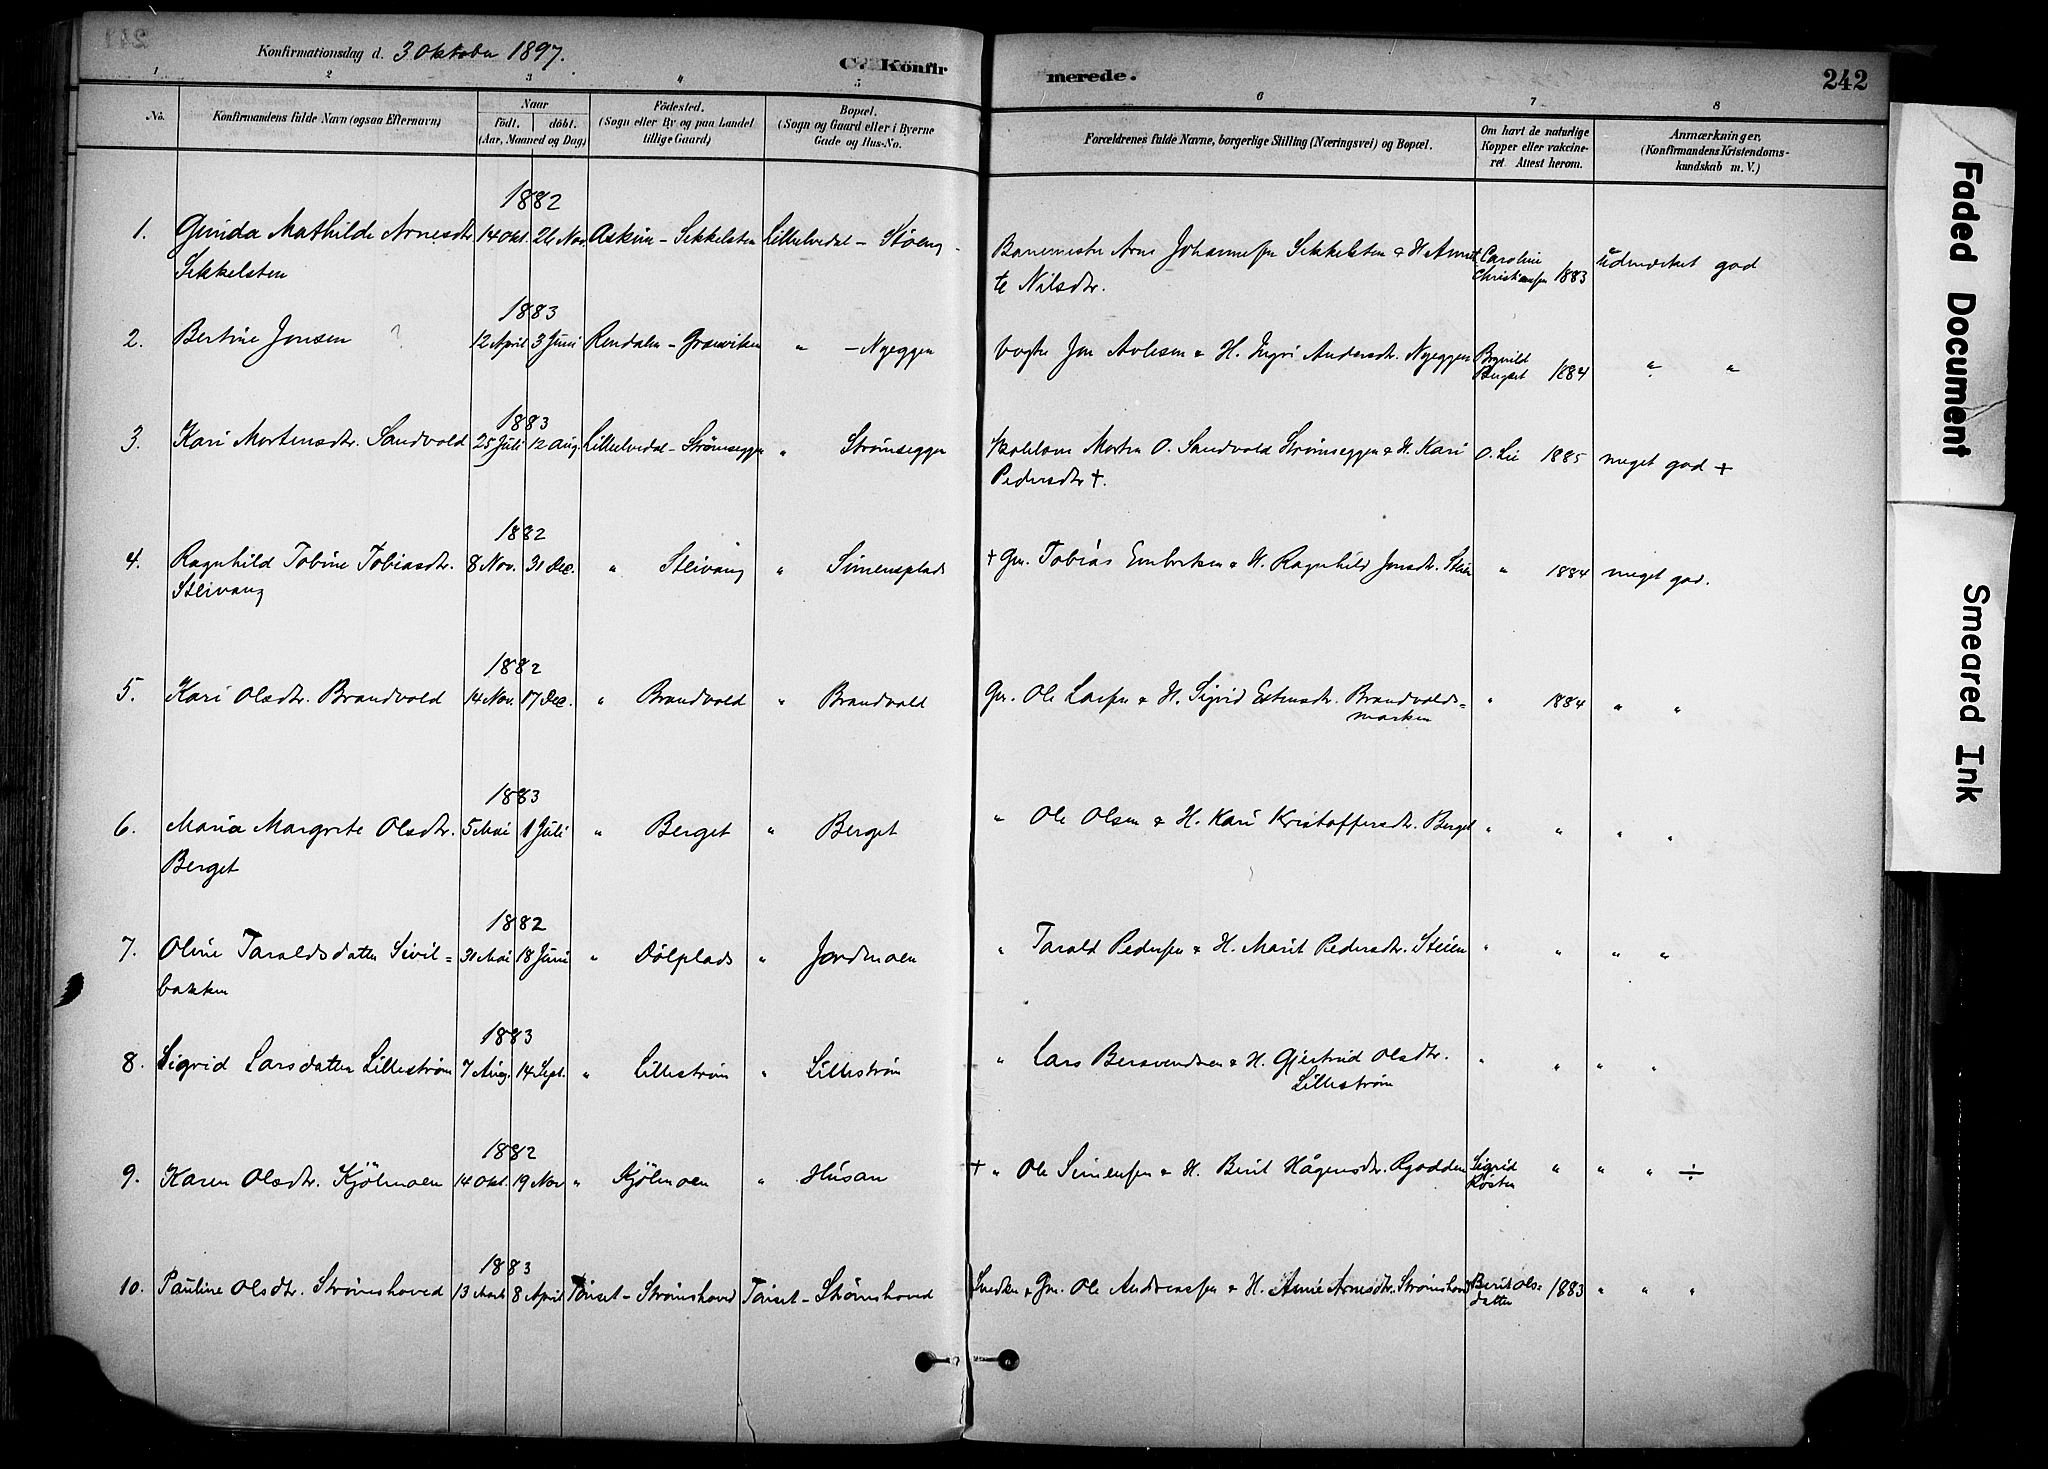 Konfirmationsdag d. 3 Oktober 1897.
C. Konfir
merede.
242
1 2 3 4 5 6 7 8
No.
Konfirmandens fulde Navn (ogsaa Efternavn)
Naar
födt. döbt.
(Aar, Maaned og Dag)
Födested.
(Sogn eller By og paa Landet
tillige Gaard)
Bopæl.
(Sogn og Gaard eller i Byerne
Gade og Hus-No.
Forældrenes fulde Navne, borgerlige Stilling (Næringsvei) og Bopæl.
Om havt de naturlige
Kopper eller vakcine-
ret. Attest herom.
Anmærkninger.
(Konfirmandens Kristendoms-
kundskab m. V.)
1882
1. Gunda Mathilde Arnesdtr. 14 Okt. 26 Nov. Askim - Sekkelsten Lilleelvedal - Støeng
Sekkelsten
Banemester Arne Johannessen Sekkelsten & H. Annet-
te Nilsdtr.
Caroline
Christiansen 1883
udmerket god
1883
2. Bertine Jonsen 12 April 3 Juni Rendalen - Græsviken " - Nyeggen
Vogter Jon Avlesen & H. Ingri Andersdtr. Nyeggen
Bergset 1884 " "
1883
3. Kari Mortensdtr. Sandvold 25 Juli 12 Aug. Lilleelvedal - Strømseggen " Strømseggen
Morten O. Sandvold Strømseggen & H. Kari
Pedersdtr †.
O. Lie 1885 meget god +
1882
4. Ragnhild Tobine Tobiasdtr. 8 Nov. 31 Dec. " Steivang " Simensplads
Steivang
† Gr. Tobias Embretsen & H. Ragnhild Jonsdtr. Steien " 1884 meget god.
1882
5. Kari Olsdtr. Brandvold 14 Nov. 17 Dec. " Brandvold " Brandvold
Gr. Ole Larsen & H. Sigrid Estensdtr. Brandvolds=
marken
" 1884 " "
1883
6. Maria Margrete Olsdtr. 5 Mai 1 Juli " Berget " Berget
Berget
" Ole Olsen & H. Kari Kristoffersdtr. Berget " " " "
1882
7. Oline Taraldsdatter Sivil= 31 Mai 18 Juni " Dölplads " Jordmoen
bakken
" Tarald Pedersen & H. Marit Pedersdtr. Steien " " " "
1883
8. Sigrid Larsdatter Lillestrøm 7 Aug. 14 Sept. " Lillestrøm " Lillestrøm
" Lars Bersvendsen & H. Gjertrud Olsdtr.
Lillestrøm
" " " "
1882
9. Karen Olsdtr. Kjölmoen 14 Okt. 19 Nov " Kjölmoen " Husan
† " Ole Simensen & H. Berit Hågensdtr. Rgodden
Sigrid
Røsten " " " ÷
1883
10. Pauline Olsdtr. Strømshoved 13 Marts 8 April Tönset - Strømshoved Tönset - Strømshoved
Snedker & Gr. Ole Andreassen & H. Anne Arnesdtr. Strømshoved
Berit Ols=
datter 1883 " " "
Faded Document
Smeared Ink